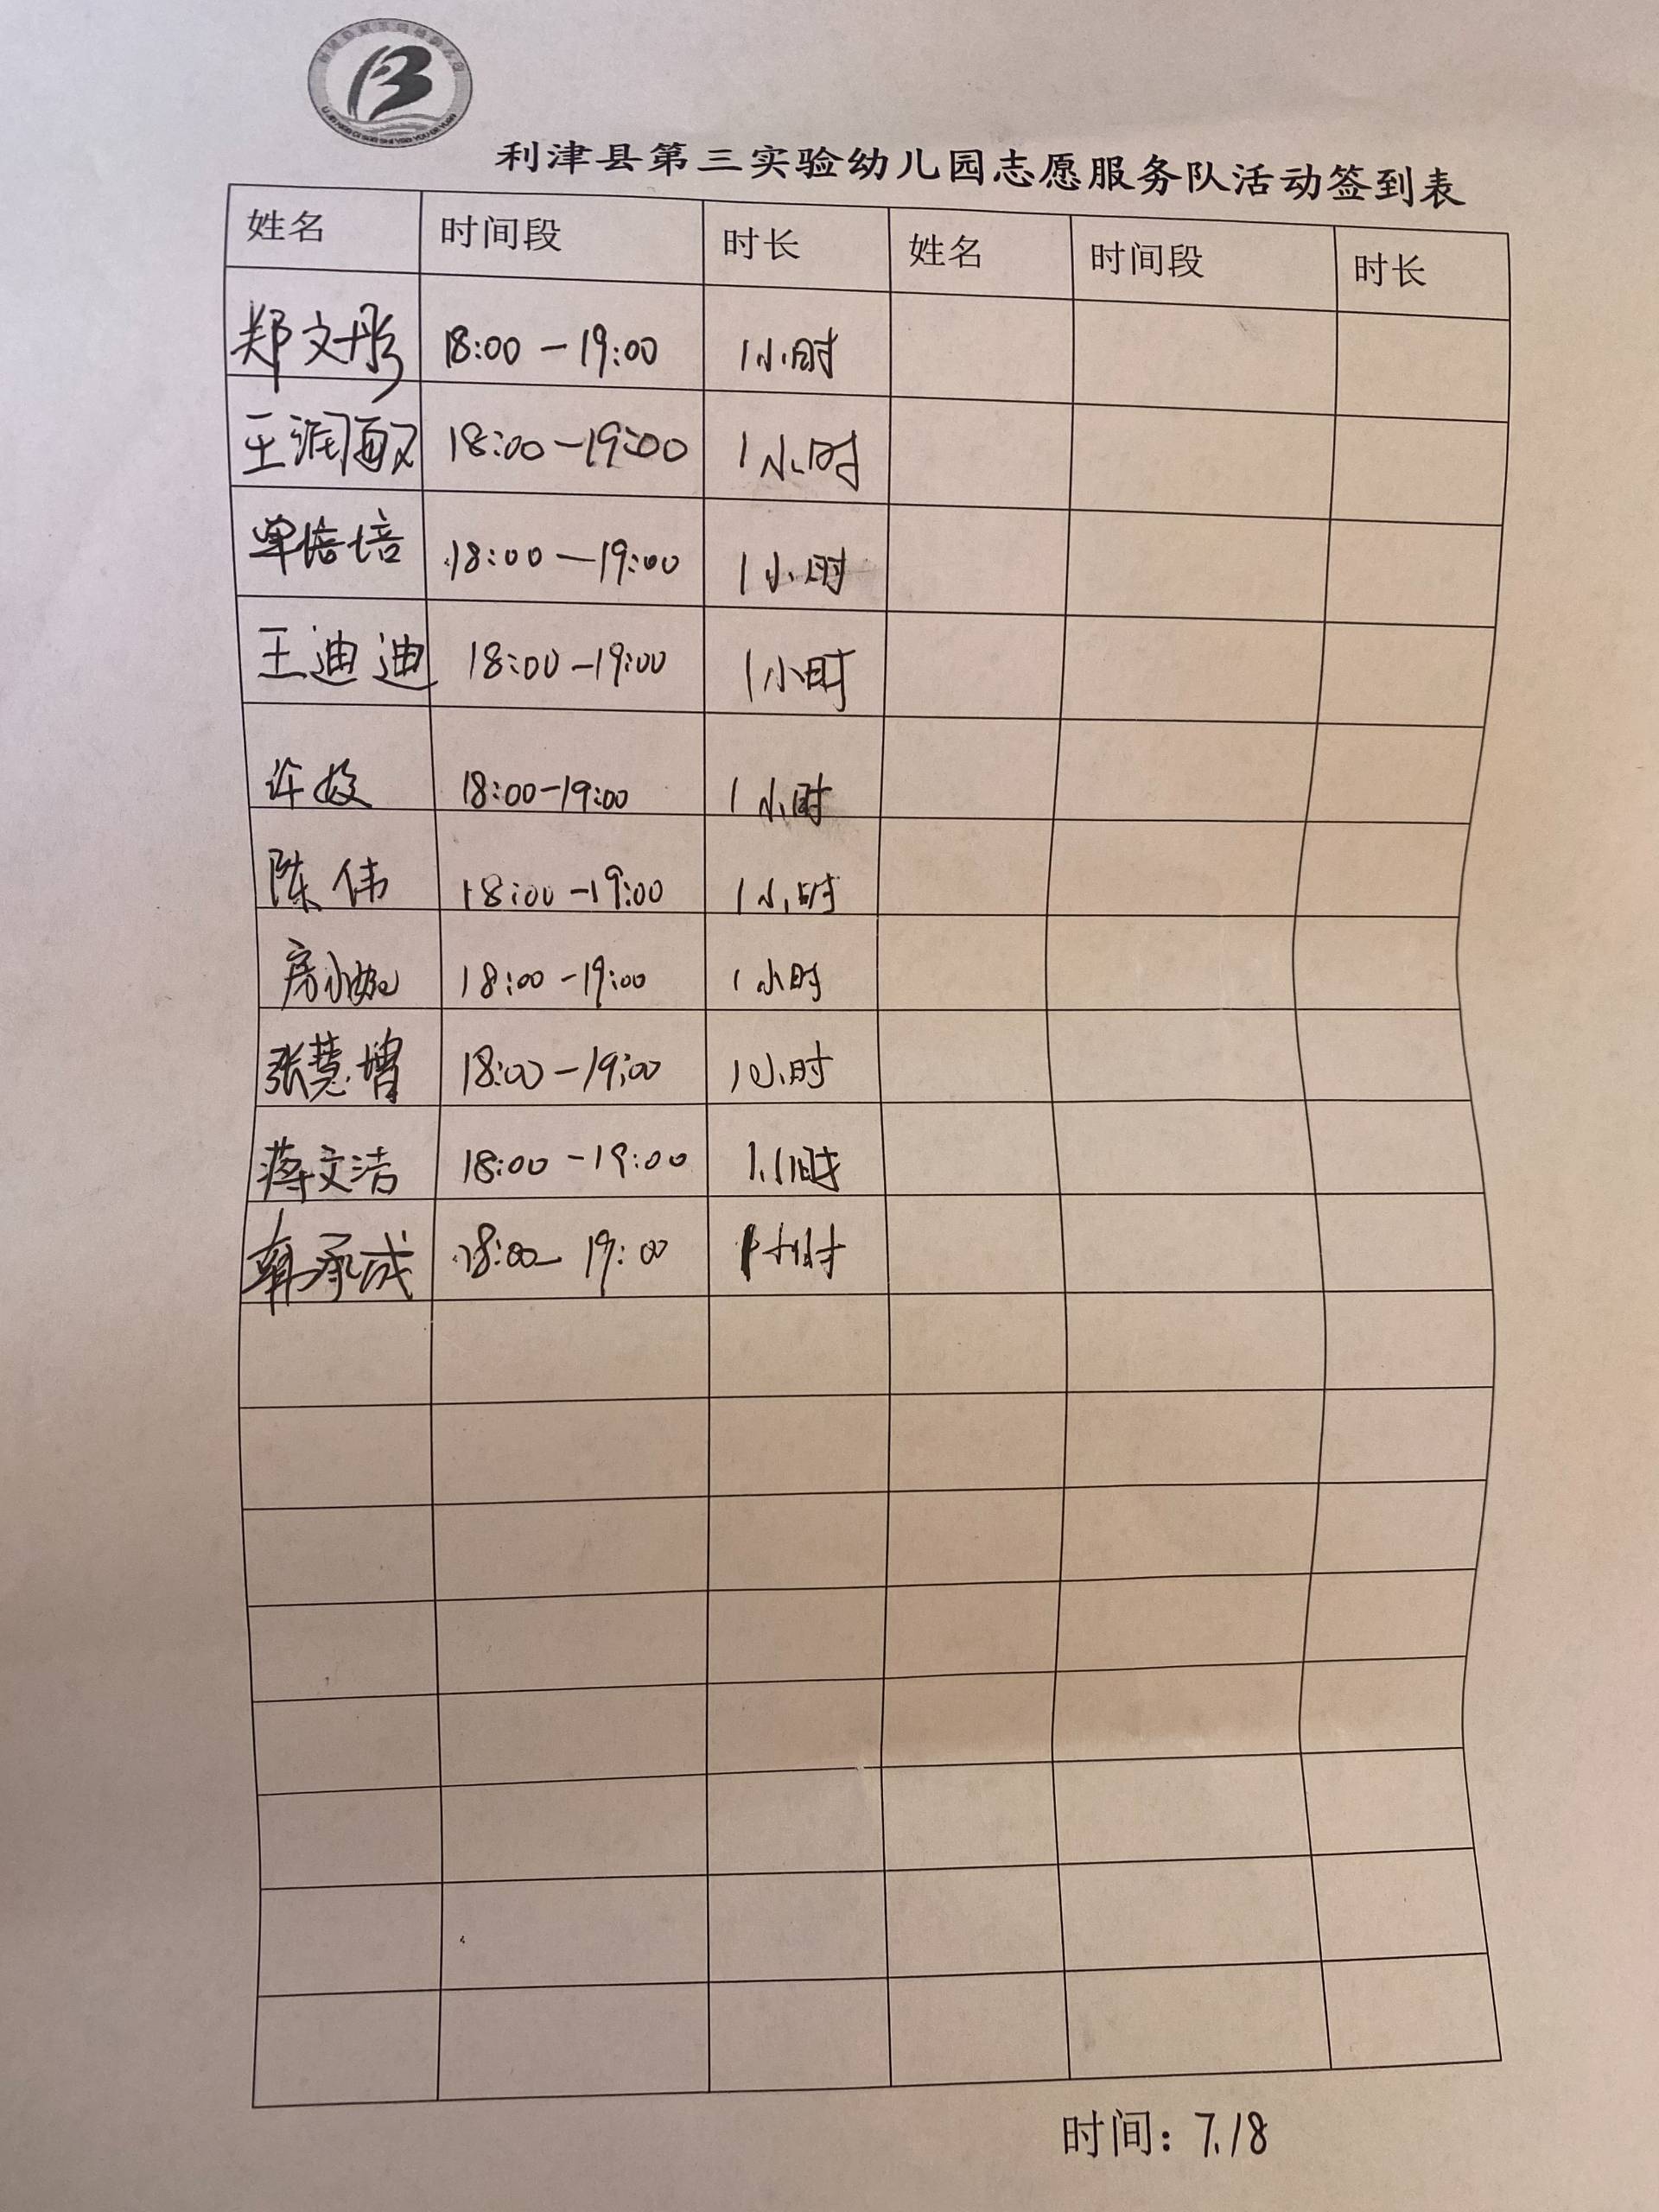 利津县第三实验幼儿园志愿服务队活动签到表
姓名 时间段 时长 姓名 时间段 时长
郑文彤 18:00-19:00 1小时
王润敏 18:00-19:00 1小时
单培培 18:00-19:00 1小时
王迪迪 18:00-19:00 1小时
许姣 18:00-19:00 1小时
陈伟 18:00-19:00 1小时
房小婉 18:00-19:00 1小时
张慧增 18:00-19:00 1小时
蒋文洁 18:00-19:00 1小时
韩承成 18:00-19:00 1小时
时间：7.18